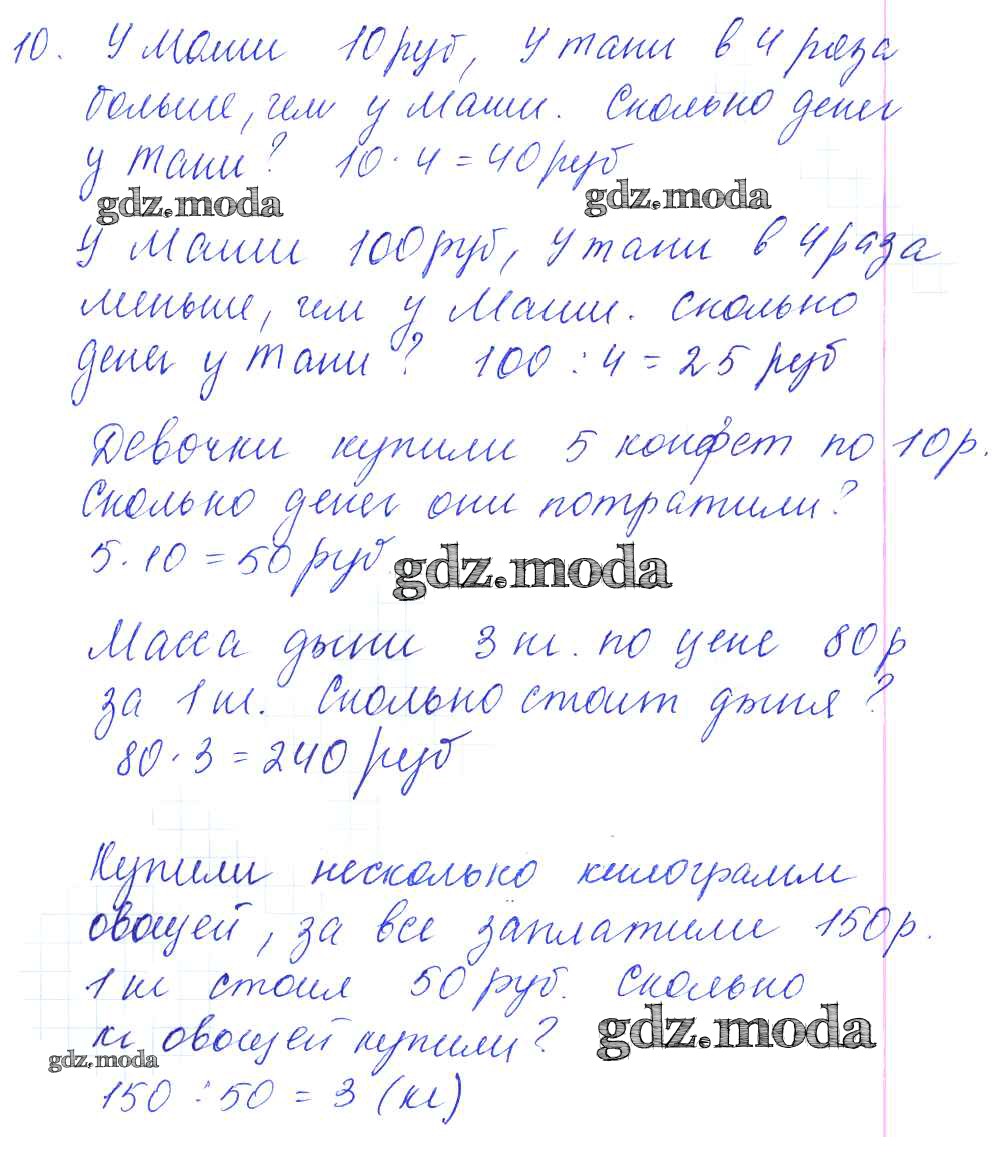 10. У Маши 10 руб, У тани в 4 раза
больше, чем у Маши. Сколько денег
у Тани? 10 · 4 = 40 руб
gdz.moda gdz.moda
У Маши 100 руб, У тани в 4 раза
меньше, чем у Маши. Сколько
денег у Тани? 100 : 4 = 25 руб
Девочки купили 5 конфет по 10 р.
Сколько денег они потратили?
5 · 10 = 50 руб gdz.moda
Масса дыни 3 кг. по цене 80 р
за 1 кг. Сколько стоит дыня?
80 · 3 = 240 руб
Купили несколько килограмм
овощей, за все заплатили 150 р.
1 кг стоил 50 руб. Сколько
кг овощей купили? gdz.moda
gdz.moda
150 : 50 = 3 (кг)